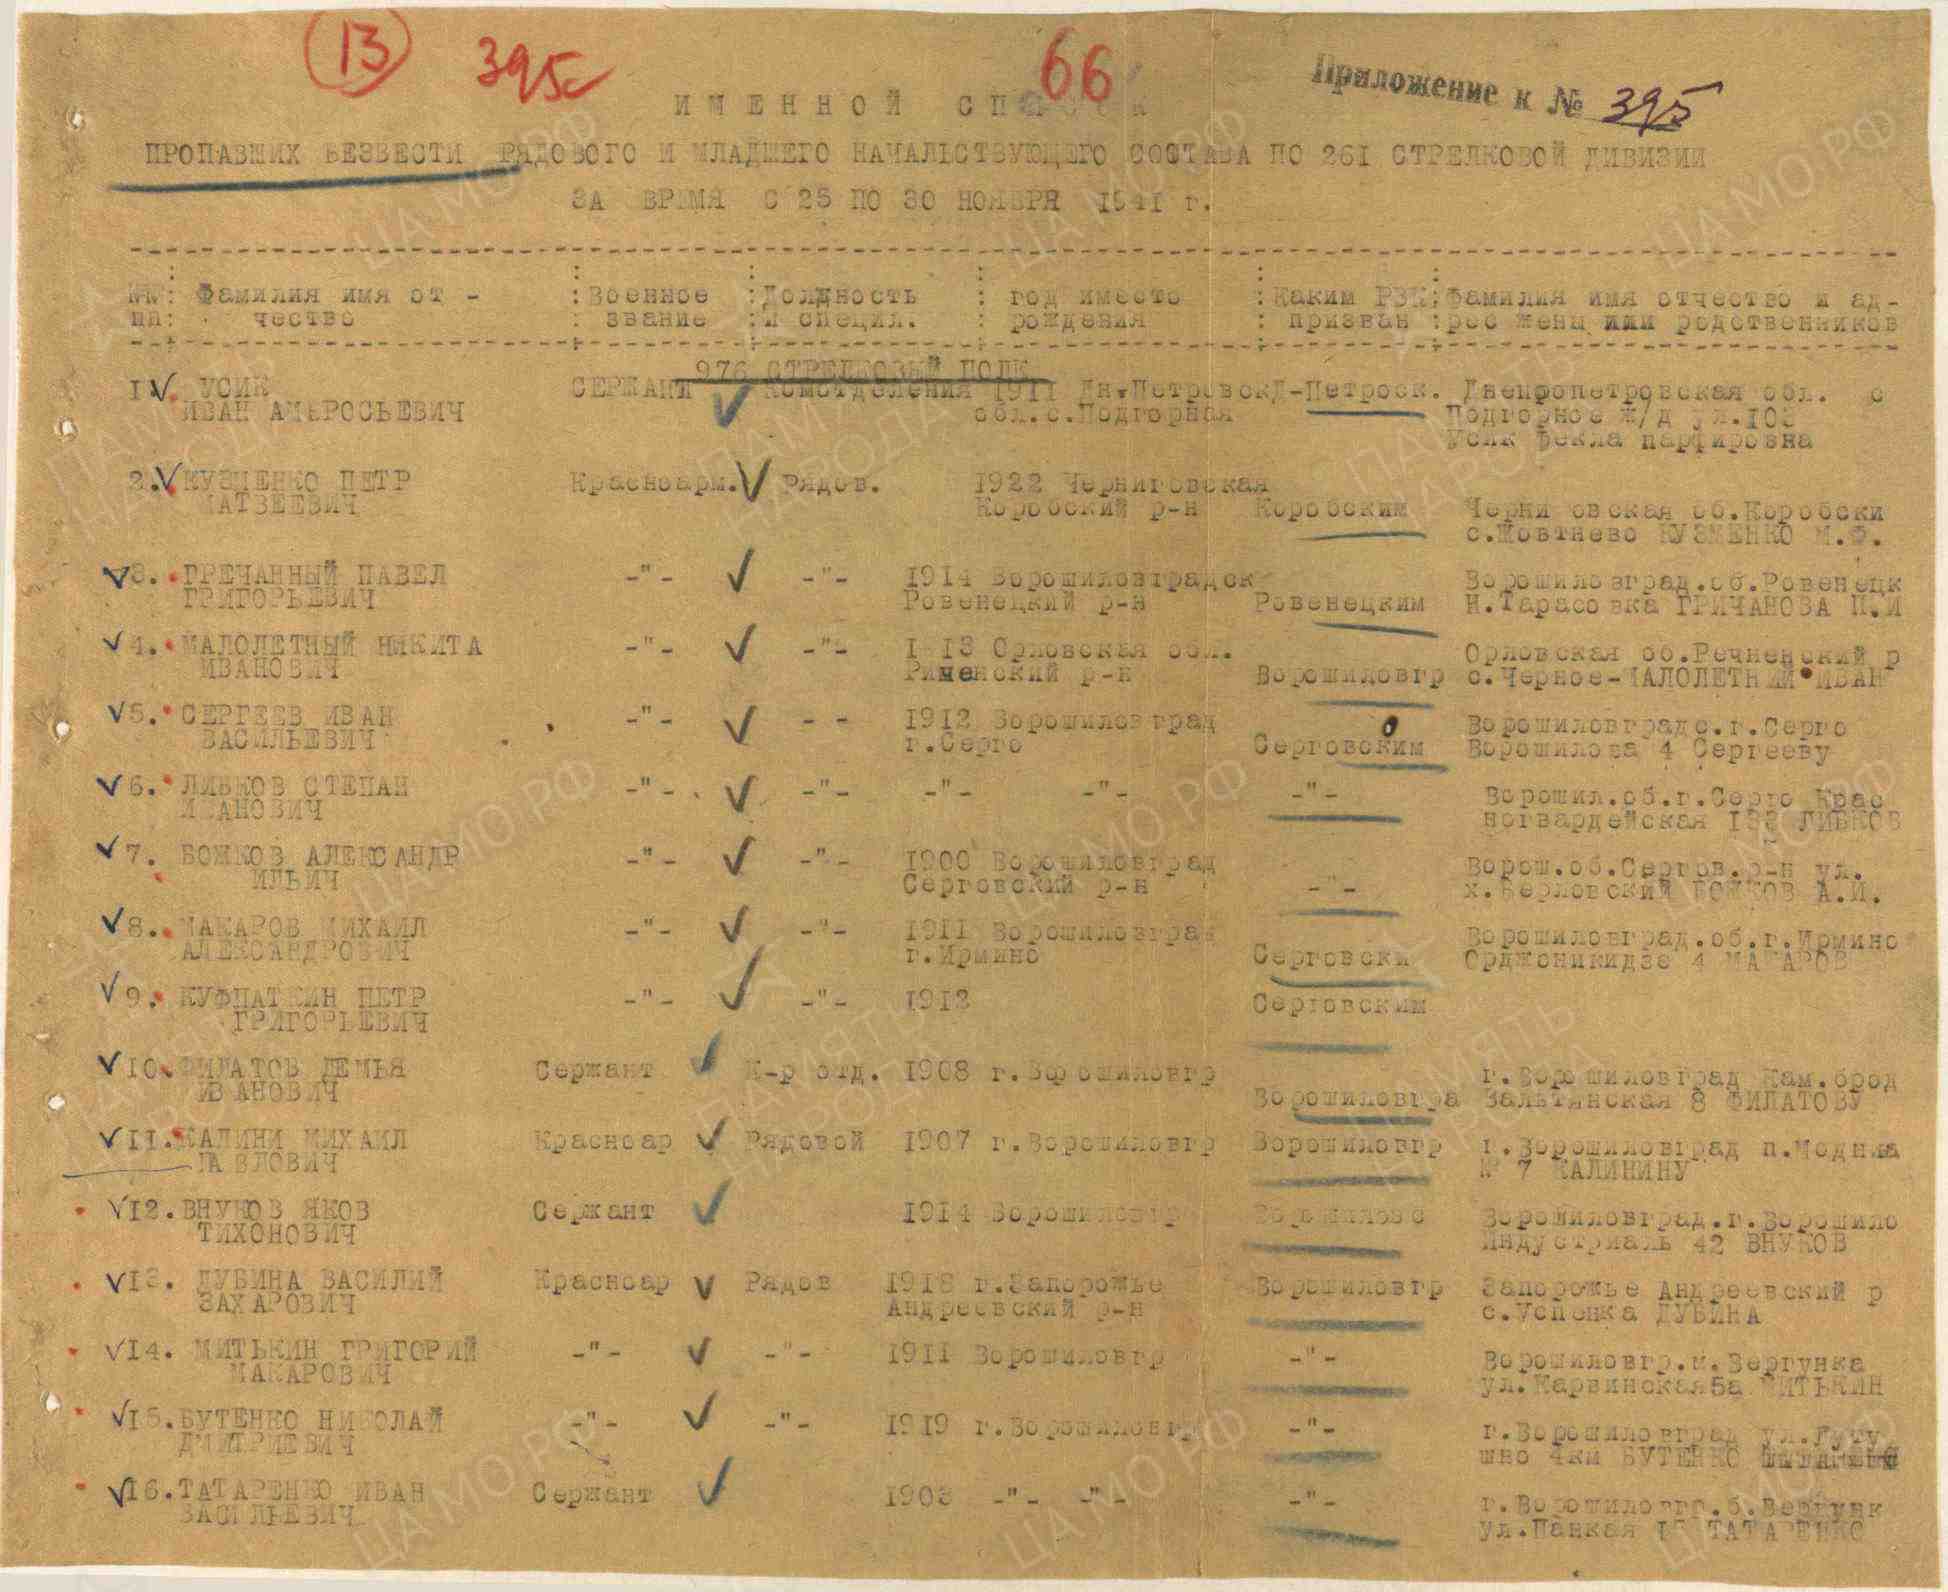 13 395с 66 Приложение к № 395
ИМЕННОЙ СПИСОК
ПРОПАВШИХ БЕЗВЕСТИ РЯДОВОГО И МЛАДШЕГО НАЧАЛЬСТВУЮЩЕГО СОСТАВА ПО 261 СТРЕЛКОВОЙ ДИВИЗИИ
ЗА ВРЕМЯ С 25 ПО 30 НОЯБРЯ 1941 г.
№№ : Фамилия имя от - : Военное : Должность : год иместо : Каким РВК : Фамилия имя отчество и ад-
пп: чество : звание : и специл. : рождения : призван : рес жены или родственников
976 СТРЕЛКОВЫЙ ПОЛК
1. УСИК СЕРЖАНТ Комотделения 1911 Дн.Петровск Д-Петроск. Днепропетровская обл. с
ИВАН АМВРОСЬЕВИЧ обл.с.Подгорная Подгорное ж/д ул.103
Усик Фекла парфировна
2. КУЗМЕНКО ПЕТР Красноарм. Рядов. 1922 Черниговская
МАТВЕЕВИЧ Коробский р-н Коробским Черни овская об.Коробски
с.Жовтнево КУЗМЕНКО М.Ф.
3. ГРЕЧАННЫЙ ПАВЕЛ -"- -"- 1914 Ворошиловградск Ворошиловград.об.Ровенецк
ГРИГОРЬЕВИЧ Ровенецкий р-н Ровенецким Н.Тарасовка ГРИЧАНОВА П.И
4. МАЛОЛЕТНЫЙ НИКИТА -"- -"- 1 13 Орловская обл. Орловская об.Речненский р
ИВАНОВИЧ Рименский р-н Ворошиловгр с.Черное-МАЛОЛЕТНИЙ ИВАН
5. СЕРГЕЕВ ИВАН -"- - - 1912 Ворошиловград Ворошиловградс.г.Серго
ВАСИЛЬЕВИЧ г.Серго Серговским Ворошилова 4 Сергееву
6. ЛИВКОВ СТЕПАН -"- -"- -"- -"- -"- Ворошил.об.г.Серго Крас
ИВАНОВИЧ ногвардейская ЛИВКОВ
7. БОЖКОВ АЛЕКСАНДР -"- -"- 1900 Ворошиловград Ворош.об.Сергов.р-н ул.
ИЛЬИЧ Серговский р-н -"- х.Берловский БОЖКОВ А.И.
8. МАКАРОВ МИХАИЛ -"- -"- 1911 Ворошиловград Ворошиловград.об.г.Ирмино
АЛЕКСАНДРОВИЧ г.Ирмино Серговски Орджоникидзе 4 МАКАРОВ
9. ПЕТР -"- -"- 1912 Серговским
ГРИГОРЬЕВИЧ
10. ФИЛАТОВ ДЕМЬЯ Сержант К-р отд. 1908 г.Ворошиловгр г.Ворошиловград Кам.брод
ИВАНОВИЧ Ворошиловгра Зальтянская 8 ФИЛАТОВУ
11. КАЛИНИ МИХАИЛ Красноар Рядовой 1907 г.Ворошиловгр Ворошиловгр г.Ворошиловград п.Модния
ПАВЛОВИЧ № 7 КАЛИНИНУ
12. ВНУКОВ ЯКОВ Сержант 1914 Ворошиловгр Ворошиловс Ворошиловград.г.Ворошило
ТИХОНОВИЧ Индустриаль 42 ВНУКОВ
13. ДУБИНА ВАСИЛИЙ Красноар Рядов 1918 г.Запорожье Ворошиловгр Запорожье Андреевский р
ЗАХАРОВИЧ Андреевский р-н с.Успенка ДУБИНА
14. МИТЬКИН ГРИГОРИЙ -"- -"- 1911 Ворошиловгр -"- Ворошиловгр.м.Вергунка
МАКАРОВИЧ ул.Карвинская5а МИТЬКИН
15. БУТЕНКО НИКОЛАЙ -"- -"- 1919 г.Ворошиловгр -"- г.Ворошиловград ул.Луту
ДМИТРИЕВИЧ шно 4км БУТЕНКО
16. ТАТАРЕНКО ИВАН Сержант 1903 -"- -"- -"- г.Ворошиловгр.б.Вергунк
ВАСИЛЬЕВИЧ ул.Панкая ТАТАРЕНКО